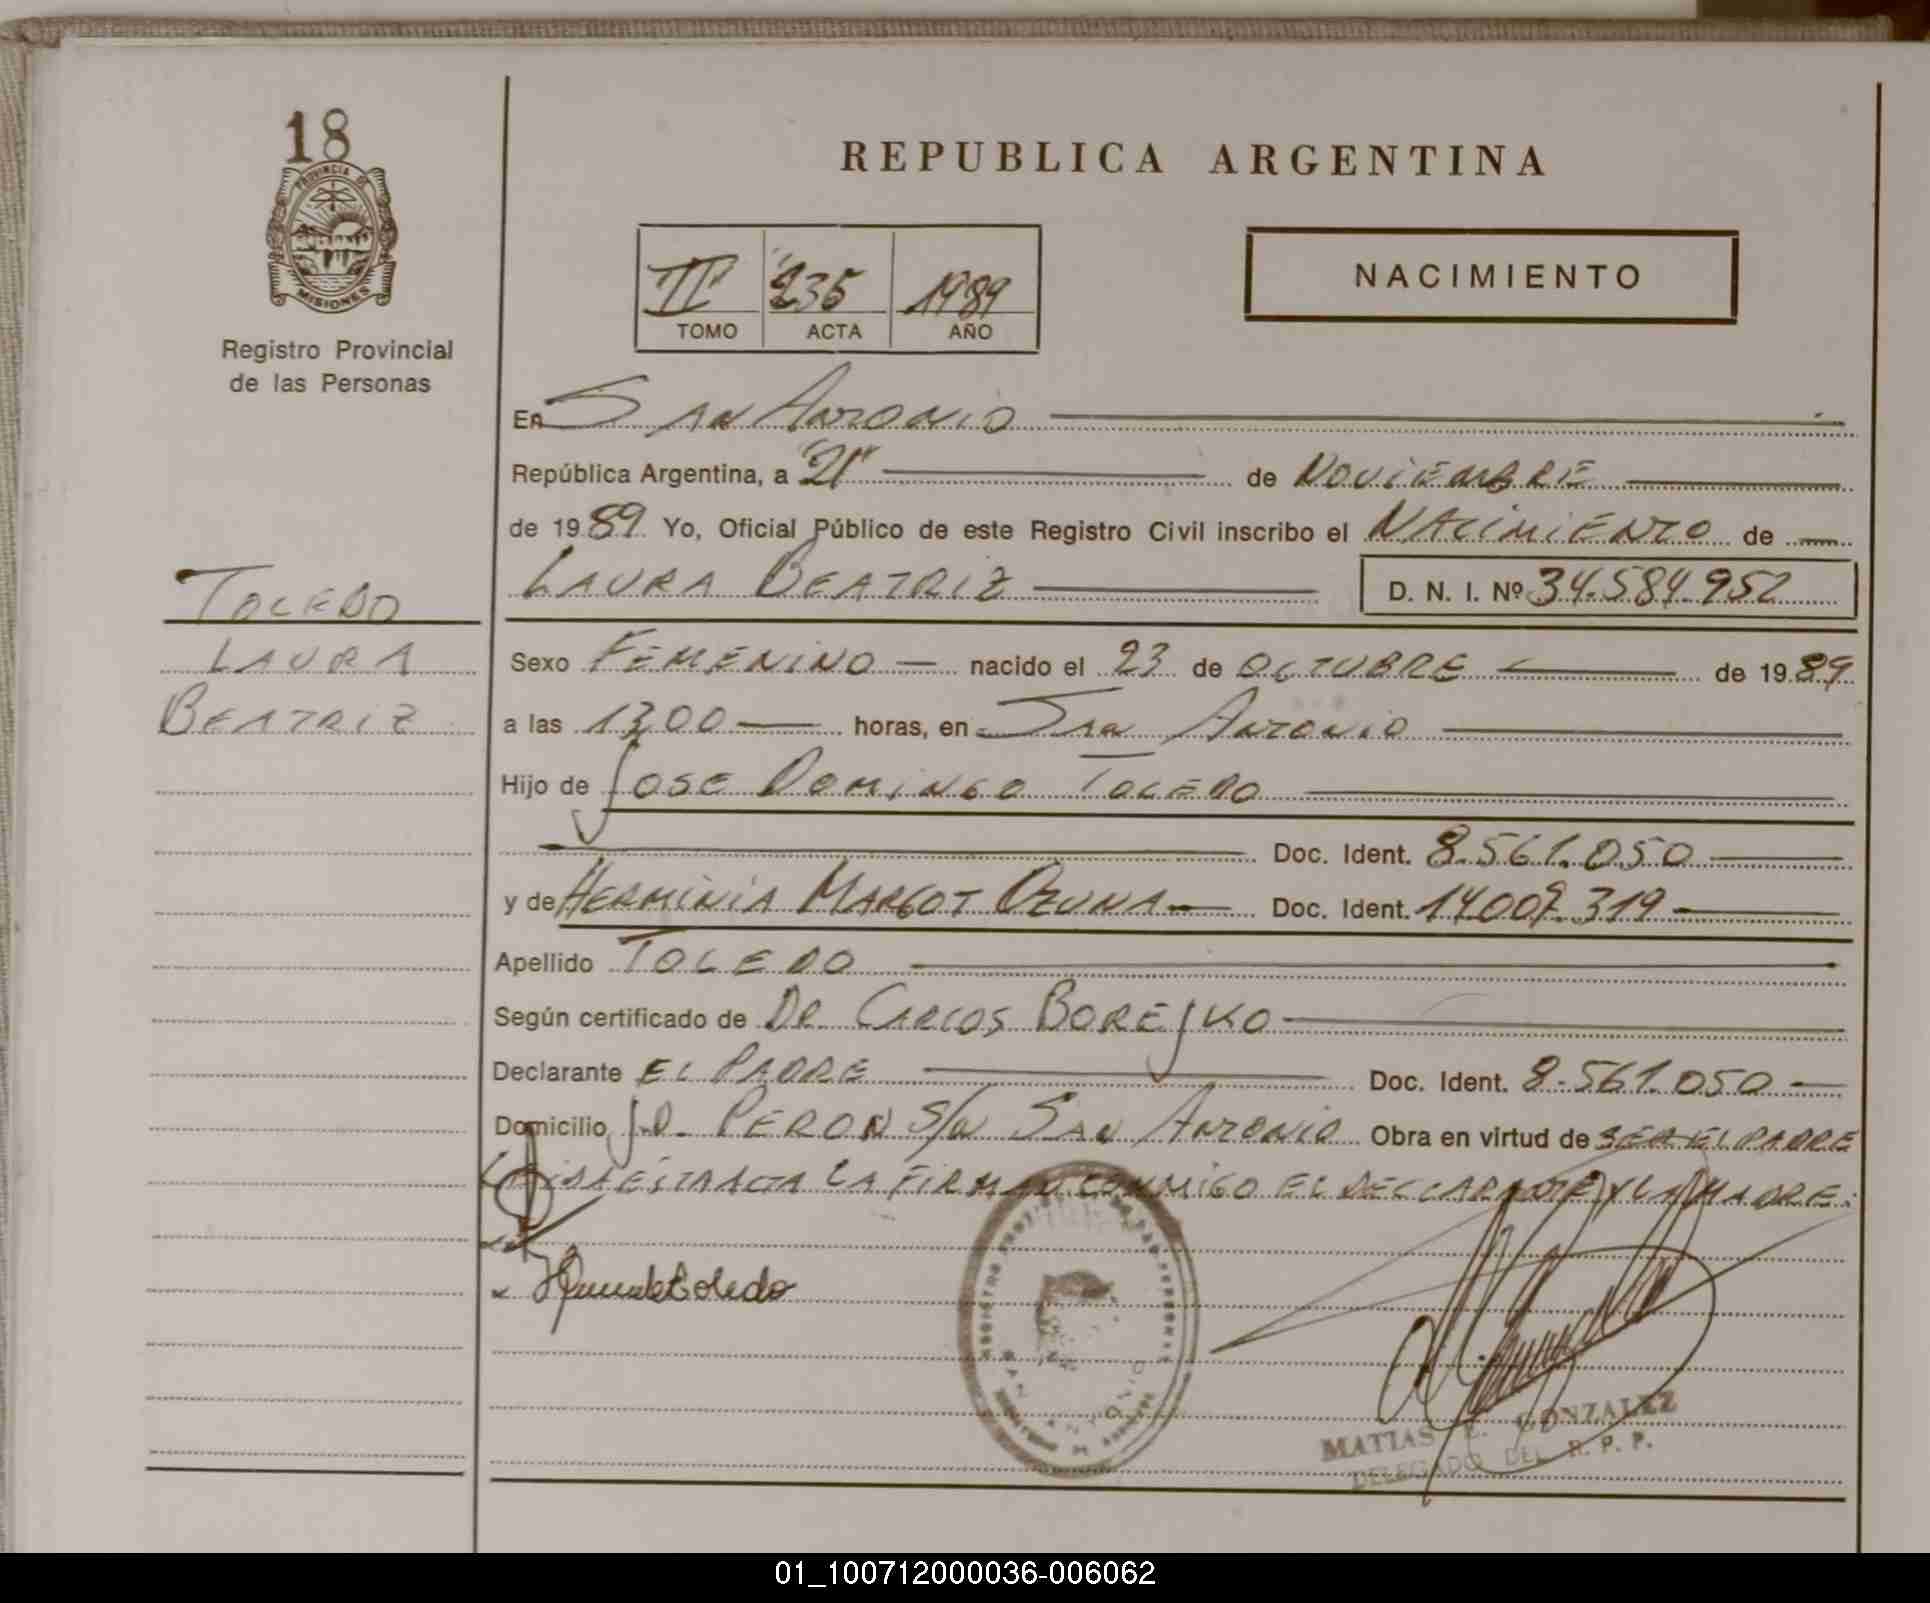 18
PROVINCIA DE
MISIONES
Registro Provincial
de las Personas
TOLEDO
LAURA
BEATRIZ
REPUBLICA ARGENTINA
II 235 1989
TOMO ACTA AÑO
NACIMIENTO
En SAN ANTONIO
República Argentina, a "21" de NOVIEMBRE
de 1989 Yo, Oficial Público de este Registro Civil inscribo el NACIMIENTO de
LAURA BEATRIZ D. N. I. Nº 34.584.952
Sexo FEMENINO nacido el 23 de OCTUBRE de 1989
a las 13,00 horas, en SAN ANTONIO
Hijo de JOSE DOMINGO TOLEDO
Doc. Ident. 8.561.050
y de HERMINIA MARGOT OZUNA Doc. Ident. 14.009.319
Apellido TOLEDO
Según certificado de DR. CARLOS BOREJKO
Declarante EL PADRE Doc. Ident. 8.561.050
Domicilio J.D. PERON S/N SAN ANTONIO Obra en virtud de SER EL PADRE
LEIDA ESTA ACTA LA FIRMAN CONMIGO EL DECLARANTE Y LA MADRE.
SAN ANTONIO
MATIAS GONZALEZ
DELEGADO DEL R. P. P.
01_100712000036-006062